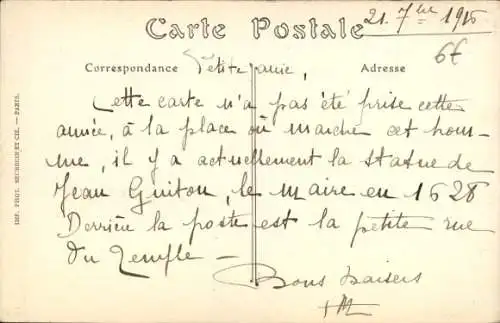 Carte Postale
21. 7bre 1915
6€
Correspondance
Adresse
Petite amie,
Cette carte n'a pas été prise cette
année, à la place où marche cet hom-
me, il y a actuellement la statue de
Jean Guiton, le Maire en 1628
Derrière la poste est la petite rue
du Temple —
Bons baisers
IMP. PHOT. NEURDEIN ET CIE. — PARIS.